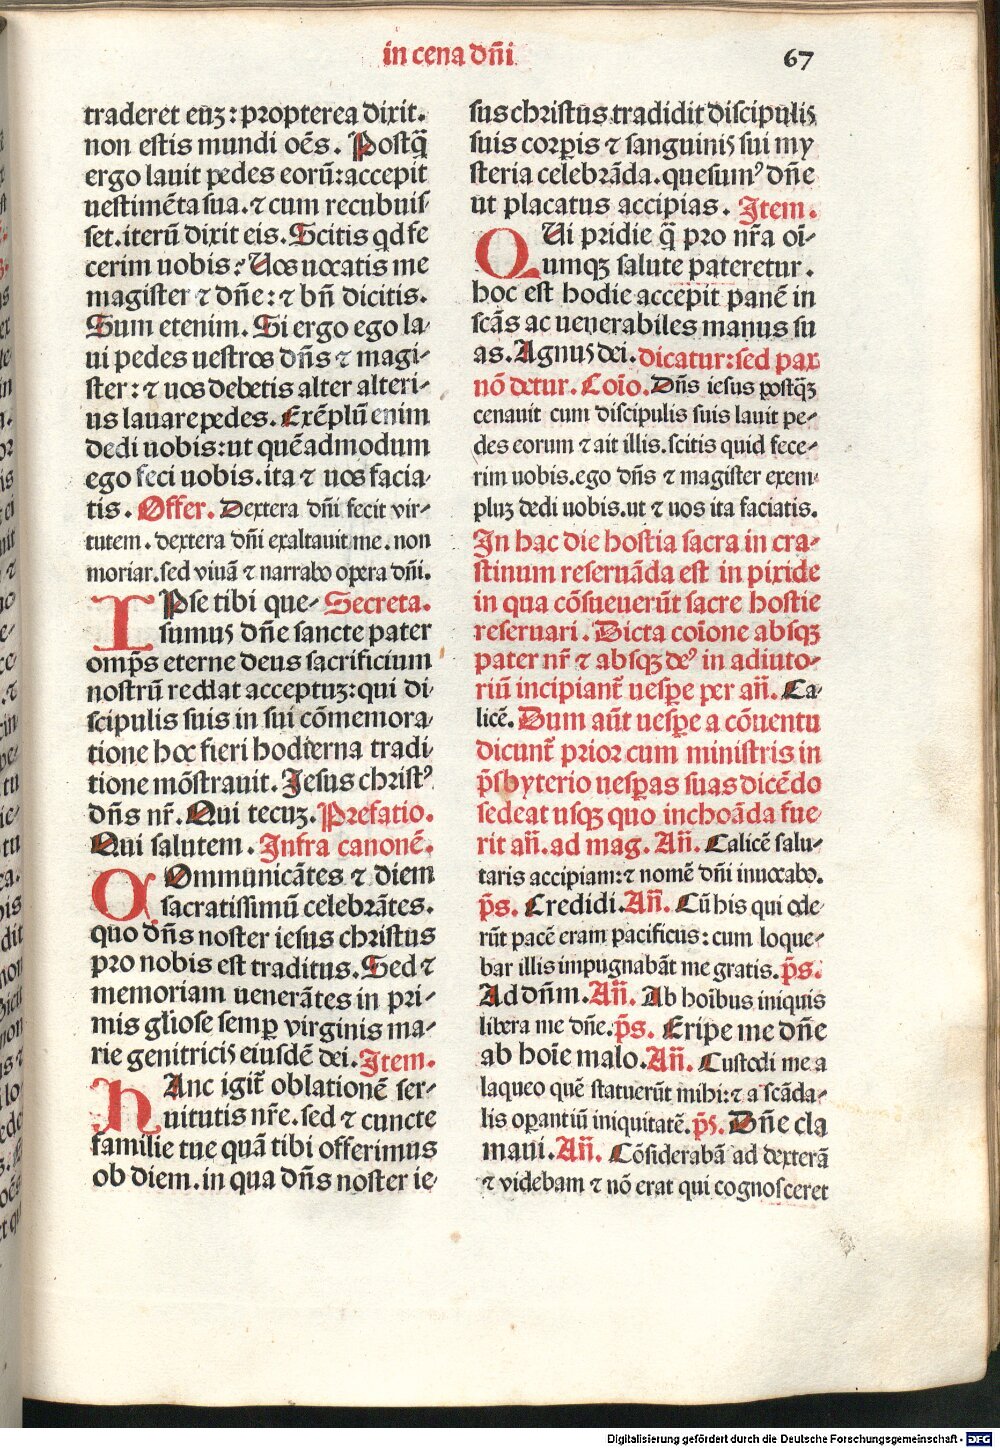 in cena dn̄i
67
traderet euȝ: propterea dixit.
non estis mundi oēs. Postq̄
ergo lauit pedes eorū: accepit
uestimēta sua. ⁊ cum recubuis
set. iterū dixit eis. Scitis qd fe
cerim uobis? Uos uocatis me
magister ⁊ dn̄e: ⁊ bn̄ dicitis.
Sum etenim. Si ergo ego la-
ui pedes uestros dn̄s ⁊ magi-
ster: ⁊ uos debetis alter alteri-
us lauare pedes. Exēplū enim
dedi uobis: ut quēadmodum
ego feci uobis. ita ⁊ uos facia-
tis. Offer. Dextera dn̄i fecit vir-
tutem. dextera dn̄i exaltauit me. non
moriar. sed viuā ⁊ narrabo opera dn̄i.
IPse tibi que- Secreta.
sumus dn̄e sancte pater
omp̄s eterne deus sacrificium
nostrū reddat acceptuȝ: qui di-
scipulis suis in sui cōmemora-
tione hoc fieri hodierna tradi-
tione mōstrauit. Jesus christꝰ
dn̄s nr̄. Qui tecuȝ. Prefatio.
Qui salutem. Infra canonē.
COmmunicātes ⁊ diem
sacratissimū celebrātes.
quo dn̄s noster iesus christus
pro nobis est traditus. Sed ⁊
memoriam uenerātes in pri-
mis gl̄iose semꝑ virginis ma-
rie genitricis eiusdē dei. Item.
HAnc igit̄ oblationē ser-
uitutis nr̄e. sed ⁊ cuncte
familie tue quā tibi offerimus
ob diem. in qua dn̄s noster ie-
sus christus tradidit discipulis
suis corꝑis ⁊ sanguinis sui my
steria celebrāda. quesumꝰ dn̄e
ut placatus accipias. Item.
QUi pridie q̄ pro nr̄a oī-
umqȝ salute pateretur.
hoc est hodie accepit panē in
scās ac uenerabiles manus su
as. Agnus dei. dicatur: sed pax
nō detur. Coīo. Dn̄s iesus postq̄ȝ
cenauit cum discipulis suis lauit pe-
des eorum ⁊ ait illis. scitis quid fece-
rim uobis. ego dn̄s ⁊ magister exem-
pluȝ dedi uobis. ut ⁊ uos ita faciatis.
In hac die hostia sacra in cra-
stinum reseruāda est in pixide
in qua cōsueuerūt sacre hostie
reseruari. Dicta coīone absqȝ
pater nr̄ ⁊ absqȝ deꝰ in adiuto-
riū incipiant̄ uesꝑe per an̄. Ca-
licē. Dum aūt uesꝑe a cōuentu
dicunt̄ prior cum ministris in
p̄sbyterio uesꝑas suas dicēdo
sedeat usqȝ quo inchoāda fue
rit an̄. ad mag. An̄. Calicē salu-
taris accipiam: ⁊ nomē dn̄i inuocabo.
p̄s. Credidi. An̄. Cū his qui ode-
rūt pacē eram pacificus: cum loque-
bar illis impugnabāt me gratis. p̄s.
Ad dn̄m. An̄. Ab hoībus iniquis
libera me dn̄e. p̄s. Eripe me dn̄e
ab hoīe malo. An̄. Custodi me a
laqueo quē statuerūt mihi: ⁊ a scāda-
lis oꝑantiū iniquitatē. p̄s. Dn̄e cla
maui. An̄. Cōsiderabā ad dexterā
⁊ videbam ⁊ nō erat qui cognosceret
Digitalisierung gefördert durch die Deutsche Forschungsgemeinschaft - DFG